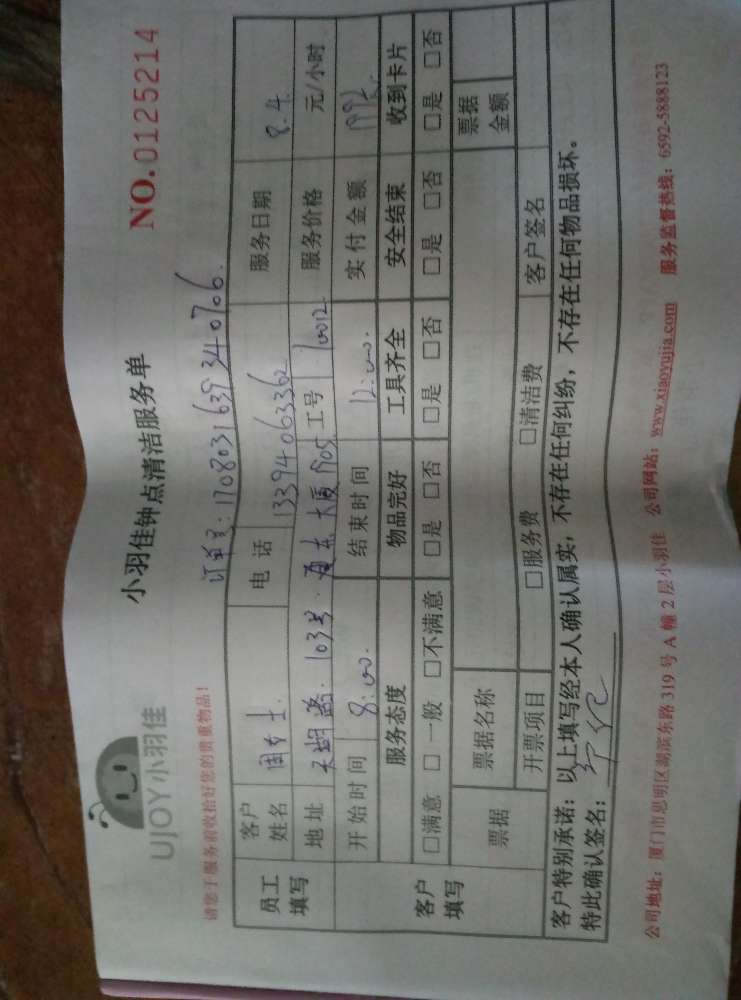 UJOY小羽佳
小羽佳钟点清洁服务单
NO.0125214
请您于服务前收拾好您的贵重物品!
订单号:170803163934 0706.
员工填写 客户姓名 周女士 电话 13394063362 服务日期 8.4.
地址 天湖路.103号. 大厦1905 工号 10012 服务价格 元/小时
开始时间 8:00 结束时间 12:00. 实付金额
客户填写 服务态度 物品完好 工具齐全 安全结束 收到卡片
□满意 □一般 □不满意 □是 □否 □是 □否 □是 □否 □是 □否
票据 票据名称 票据金额
开票项目 □服务费 □清洁费 客户签名
客户特别承诺:以上填写经本人确认属实,不存在任何纠纷,不存在任何物品损坏。
特此确认签名:
公司地址:厦门市思明区湖滨东路319号A幢2层小羽佳 公司网站:www.xiaoyujia.com 服务监督热线:0592-5888123